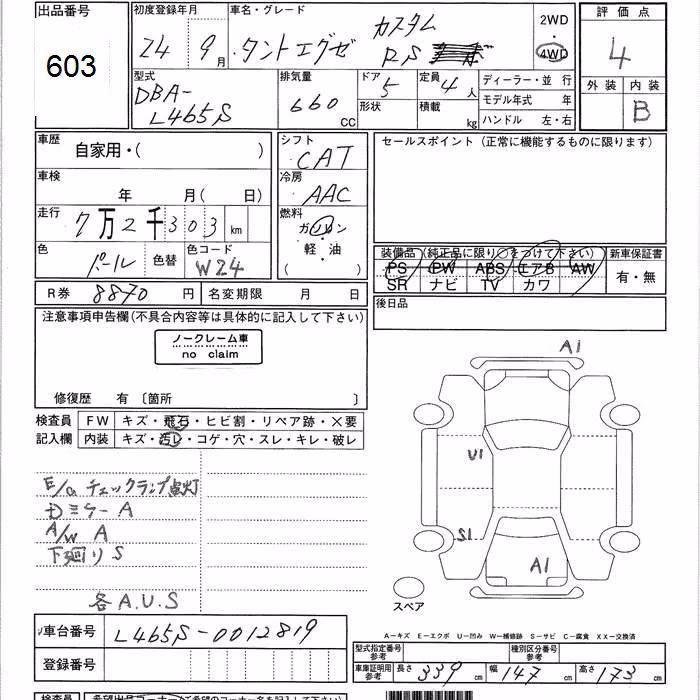 出品番号
603
初度登録年月
24 9月
車名・グレード
タントエグゼ カスタム
RS
2WD
4WD
評価点
4
外装 内装
B
型式
DBA-
L465S
排気量
660 CC
ドア 5
形状
定員 4人
積載 kg
ディーラー・並行
モデル年式 年
ハンドル 左・右
車歴
自家用・( )
車検
年 月(日)
走行
7万2千303 km
色
パール
色替
色コード
W24
シフト
CAT
冷房
AAC
燃料
ガソリン
・
軽・油
( )
セールスポイント (正常に機能するものに限ります)
装備品 (純正品に限り○をつけて下さい)
PS PW ABS エアB AW
SR ナビ TV カワ
新車保証書
有・無
R券 8870円
名変期限 月 日
後日品
注意事項申告欄(不具合内容等は具体的に記入して下さい)
ノークレーム車
no claim
修復歴 有 〔箇所 〕
検査員
記入欄
FW キズ・飛石・ヒビ割・リペア跡・×要
内装 キズ・汚レ・コゲ・穴・スレ・キレ・破レ
E/G チェックランプ点灯
Dミラー A
A/W A
下廻り S
各A.U.S
A1
U1
S1
A1
スペア
車台番号 L465S-0012819
登録番号
A－キズ E－エクボ U－凹み W－補修跡 S－サビ C－腐食 XX－交換済
型式指定番号
参考
種別区分番号
参考
車庫証明用
参考
長さ 339 cm 幅 147 cm 高さ 173 cm
検査員